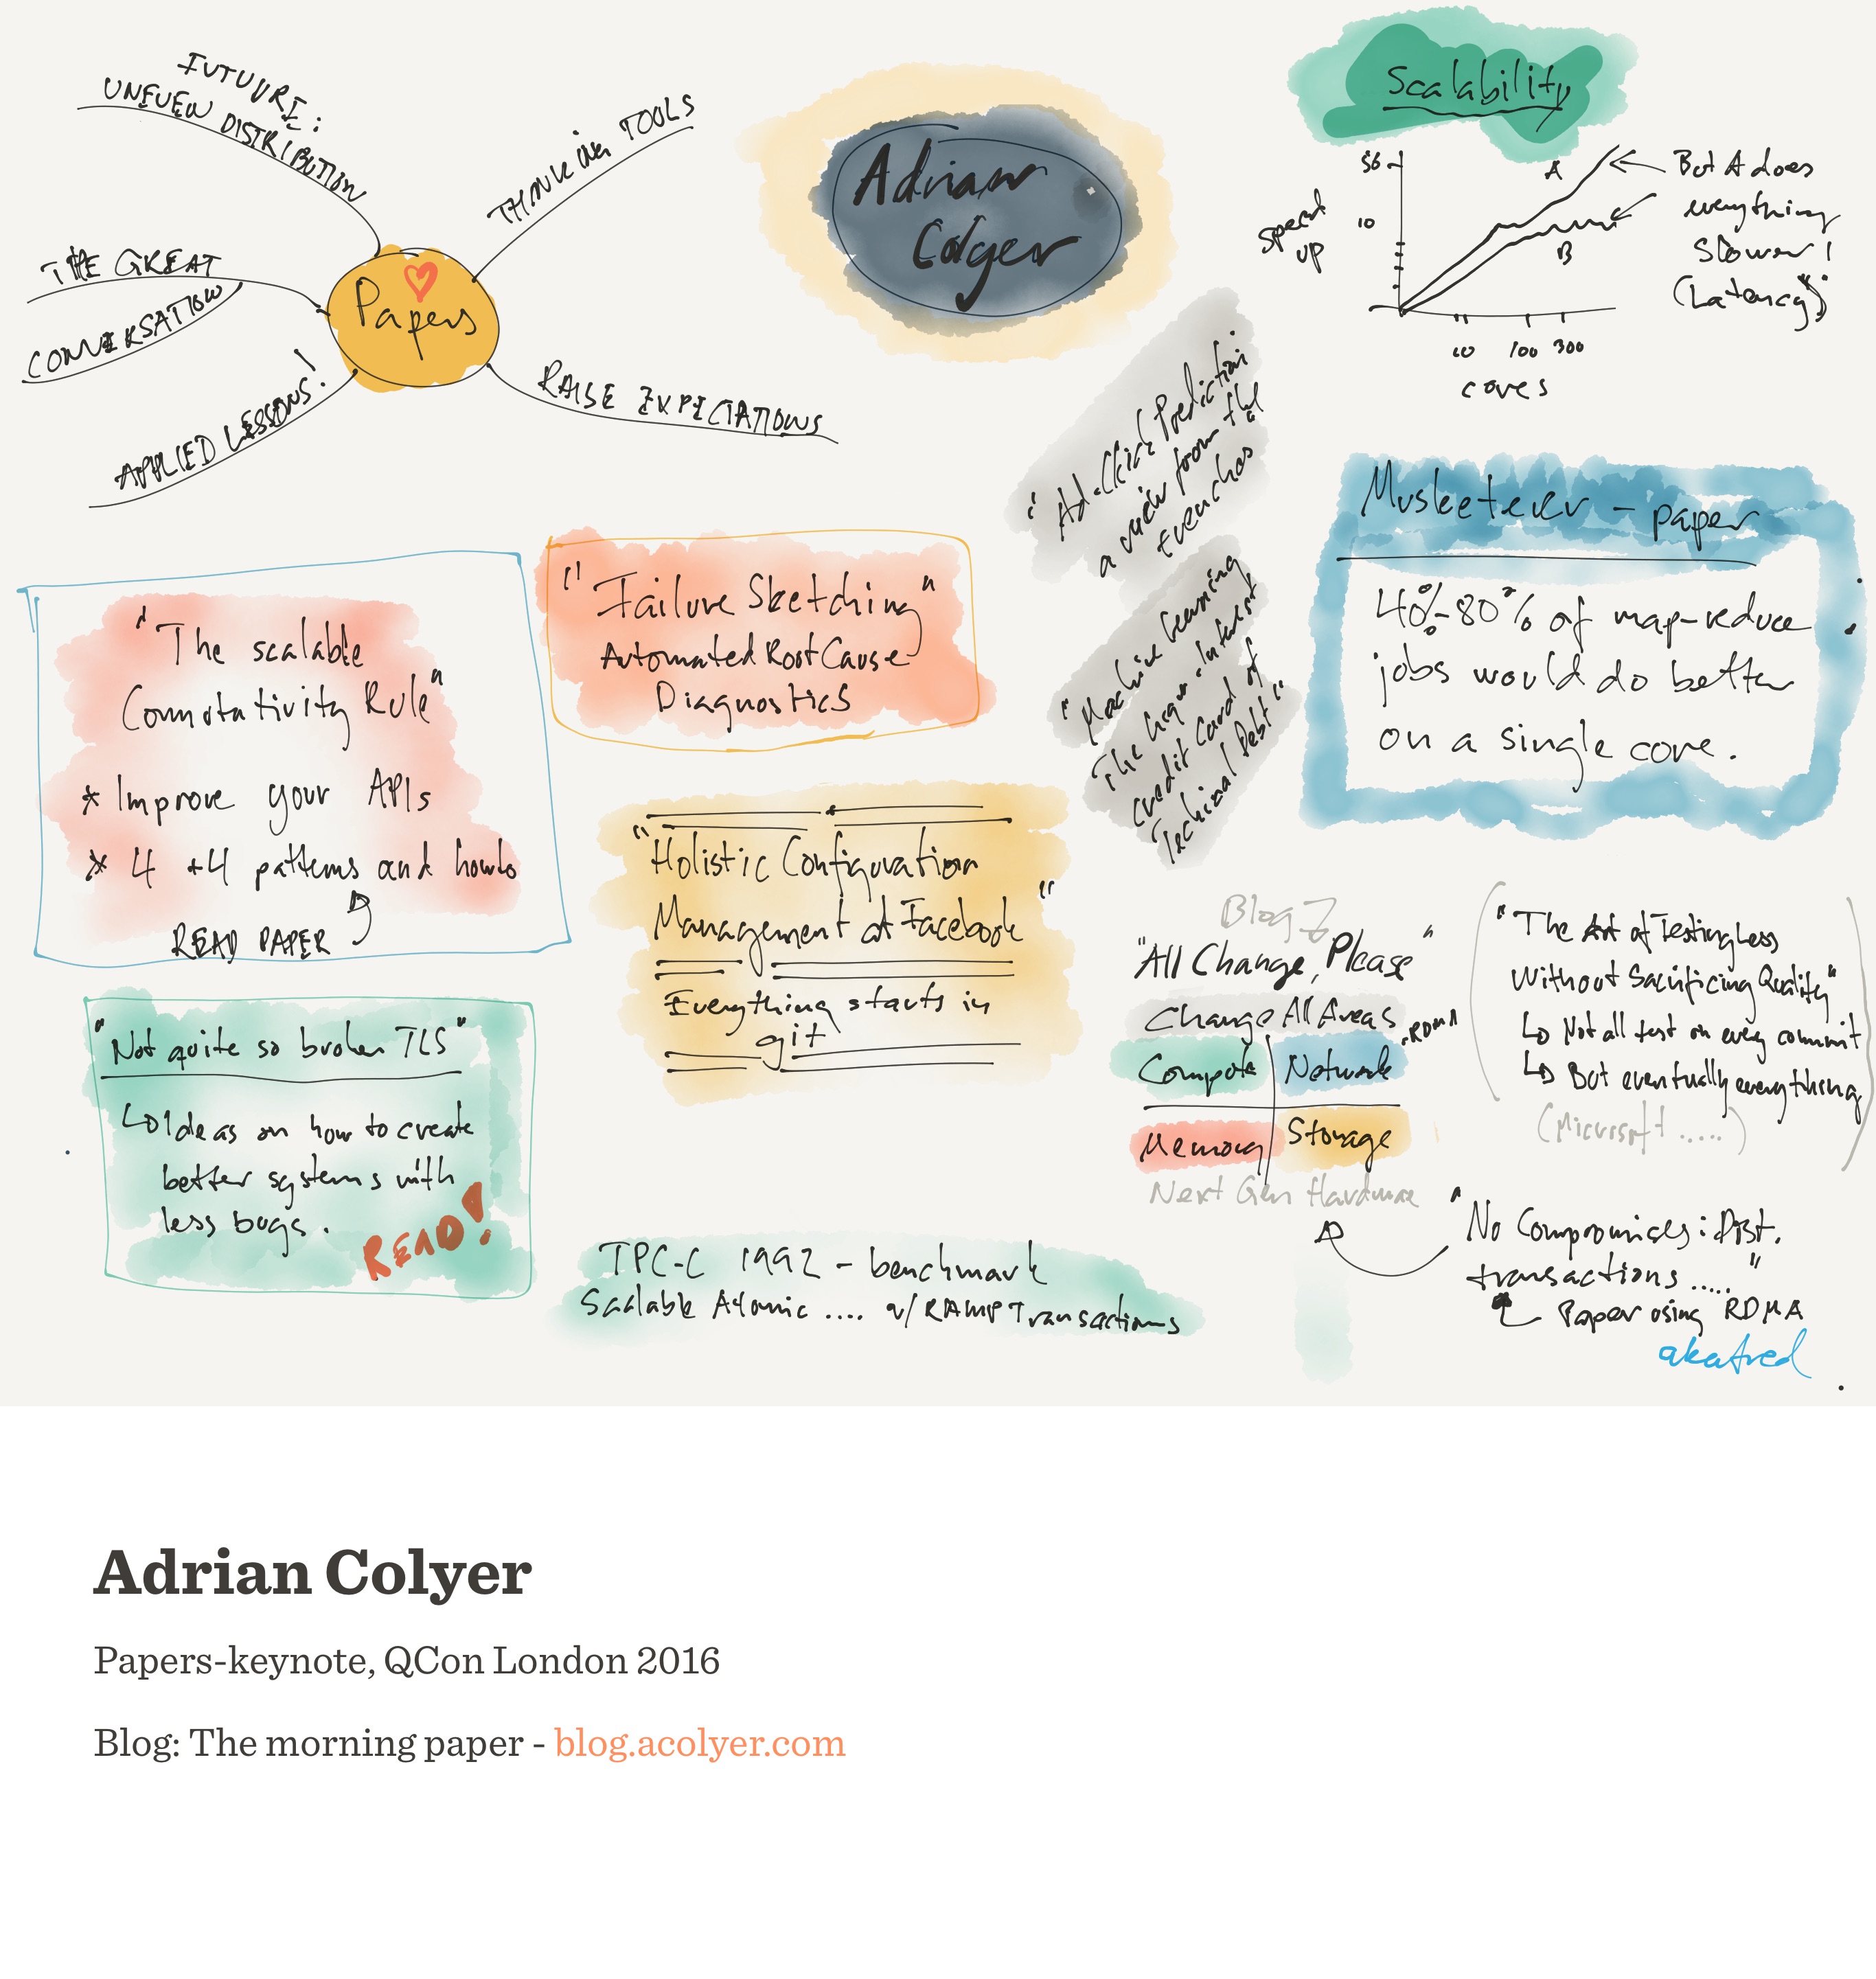 FUTURE:
UNEVEN DISTRIBUTION
THINKING TOOLS
THE GREAT
CONVERSATION
Papers
APPLIED LESSONS!
RAISE EXPECTATIONS
Adrian
Colyer
Scalability
Speed
up
50
10
A
B
10 100 300
cores
But A does
everything
slower!
(Latency)
"Ad-Click Prediction
a view from the
trenches
"Machine Learning
The high-interest
credit card of
Technical Debt"
Musketeer - paper
40%-80% of map-reduce
jobs would do better
on a single core.
"The scalable
Commutativity Rule"
* Improve your APIs
* 4 +4 patterns and howto
READ PAPER
"Failure Sketching"
Automated Root Cause
Diagnostics
"Holistic Configuration
Management at Facebook"
Everything starts in
git
"Not quite so broken TLS"
Ideas on how to create
better systems with
less bugs.
READ!
TPC-C 1992 - benchmark
Scalable Atomic .... w/ RAMP Transactions
Blog
"All Change, Please"
Change All Areas
Compute Network
.RDMA
Memory Storage
Next Gen Hardware
"The Art of Testing Less
Without Sacrificing Quality"
Not all test on every commit
But eventually everything
(Microsoft .....)
"No Compromises: Dist.
transactions ....."
Paper using RDMA
akafred
Adrian Colyer
Papers-keynote, QCon London 2016
Blog: The morning paper - blog.acolyer.com